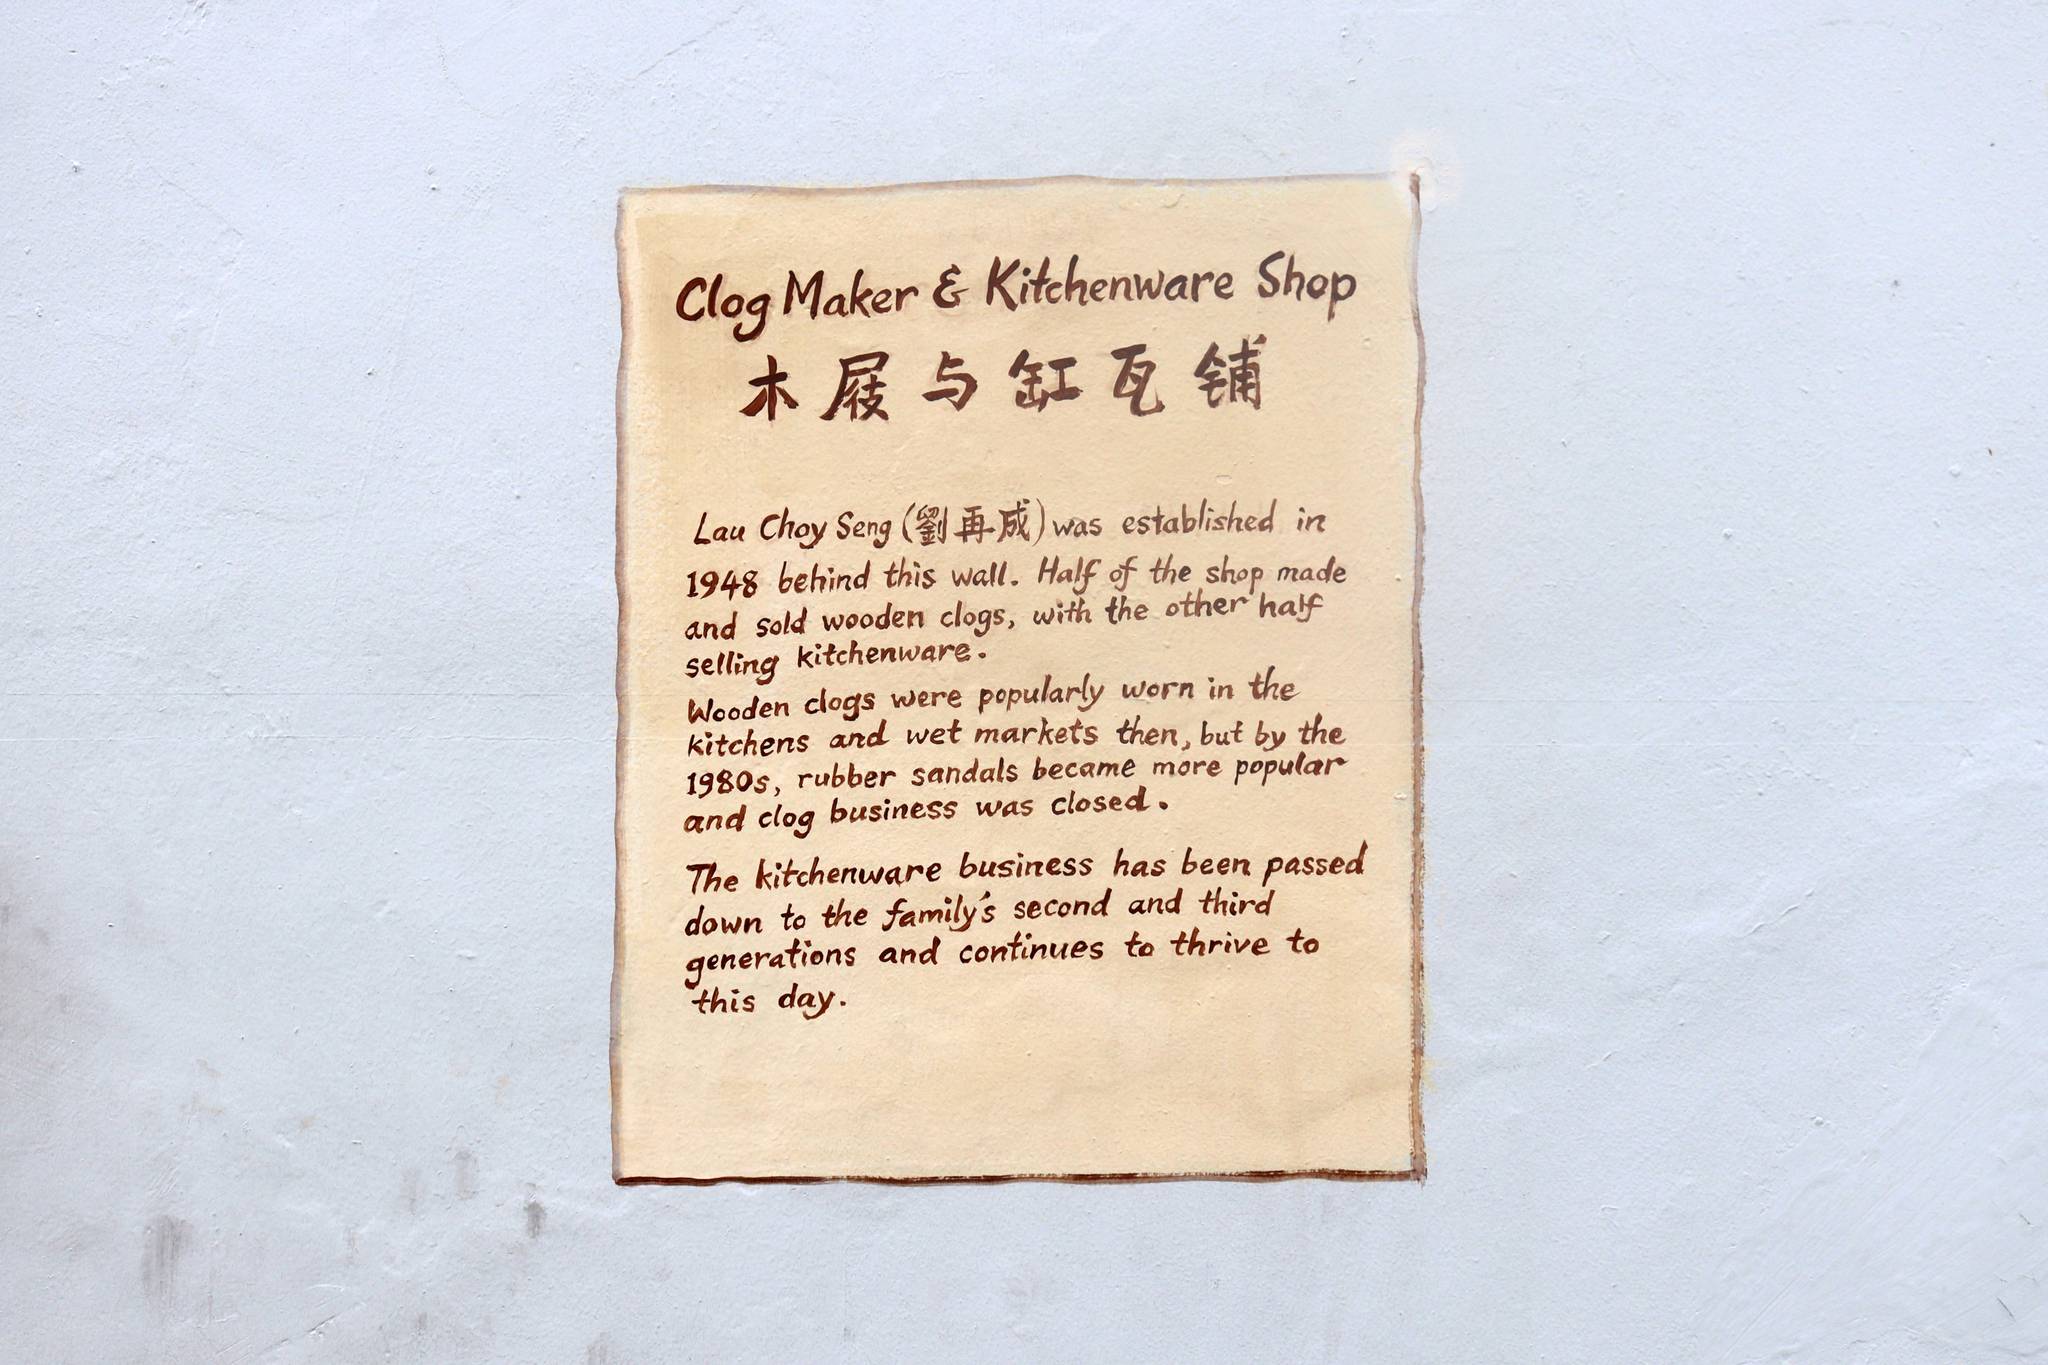 Clog Maker & Kitchenware Shop
木屐与缸瓦铺
Lau Choy Seng (劉再成) was established in
1948 behind this wall. Half of the shop made
and sold wooden clogs, with the other half
selling kitchenware.
Wooden clogs were popularly worn in the
kitchens and wet markets then, but by the
1980s, rubber sandals became more popular
and clog business was closed.
The kitchenware business has been passed
down to the family's second and third
generations and continues to thrive to
this day.